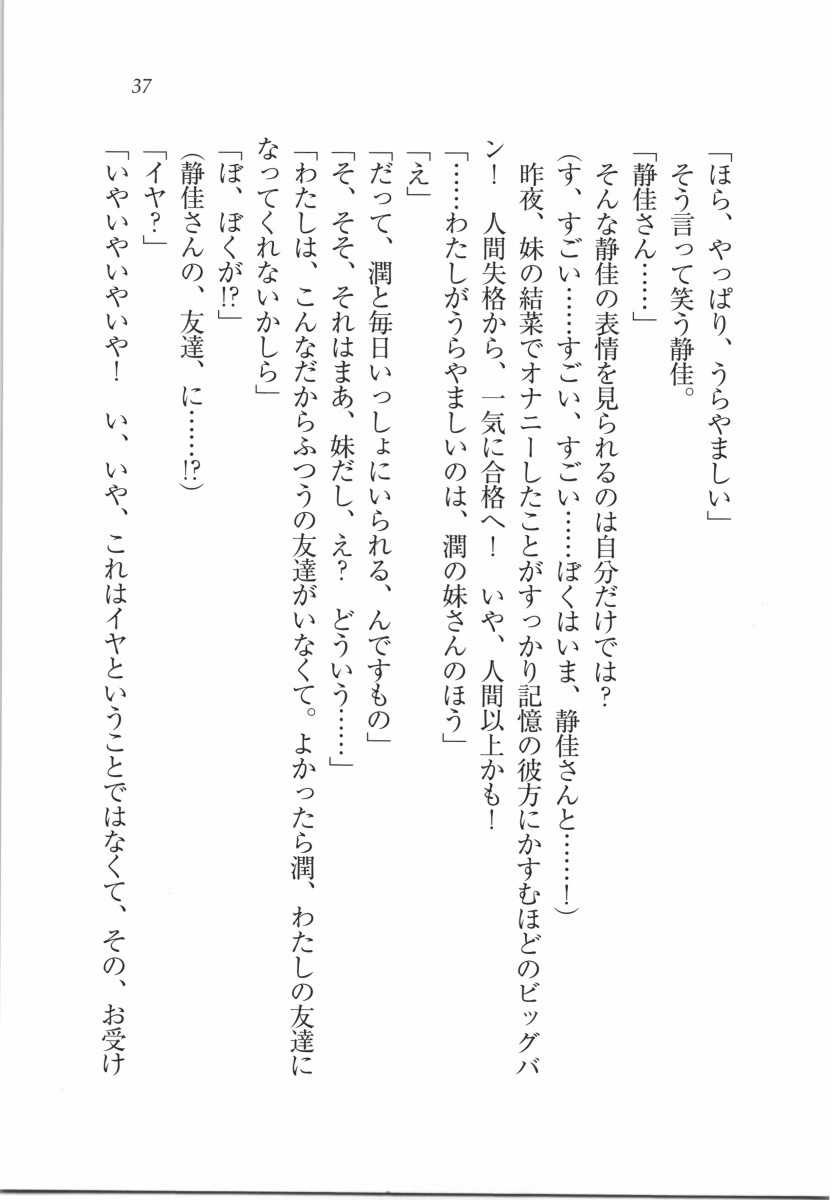 37
「ほら、やっぱり、うらやましい」
そう言って笑う静佳。
「静佳さん……」
そんな静佳の表情を見られるのは自分だけでは？
(す、すごい……すごい、すごい……ぼくはいま、静佳さんと……！)
昨夜、妹の結菜でオナニーしたことがすっかり記憶の彼方にかすむほどのビッグバ
ン！　人間失格から、一気に合格へ！　いや、人間以上かも！
「……わたしがうらやましいのは、潤の妹さんのほう」
「え」
「だって、潤と毎日いっしょにいられる、んですもの」
「そ、そそ、それはまあ、妹だし、え？　どういう……」
「わたしは、こんなだからふつうの友達がいなくて。よかったら潤、わたしの友達に
なってくれないかしら」
「ぼ、ぼくが!?」
(静佳さんの、友達、に……!?)
「イヤ？」
「いやいやいやいや！　い、いや、これはイヤということではなくて、その、お受け